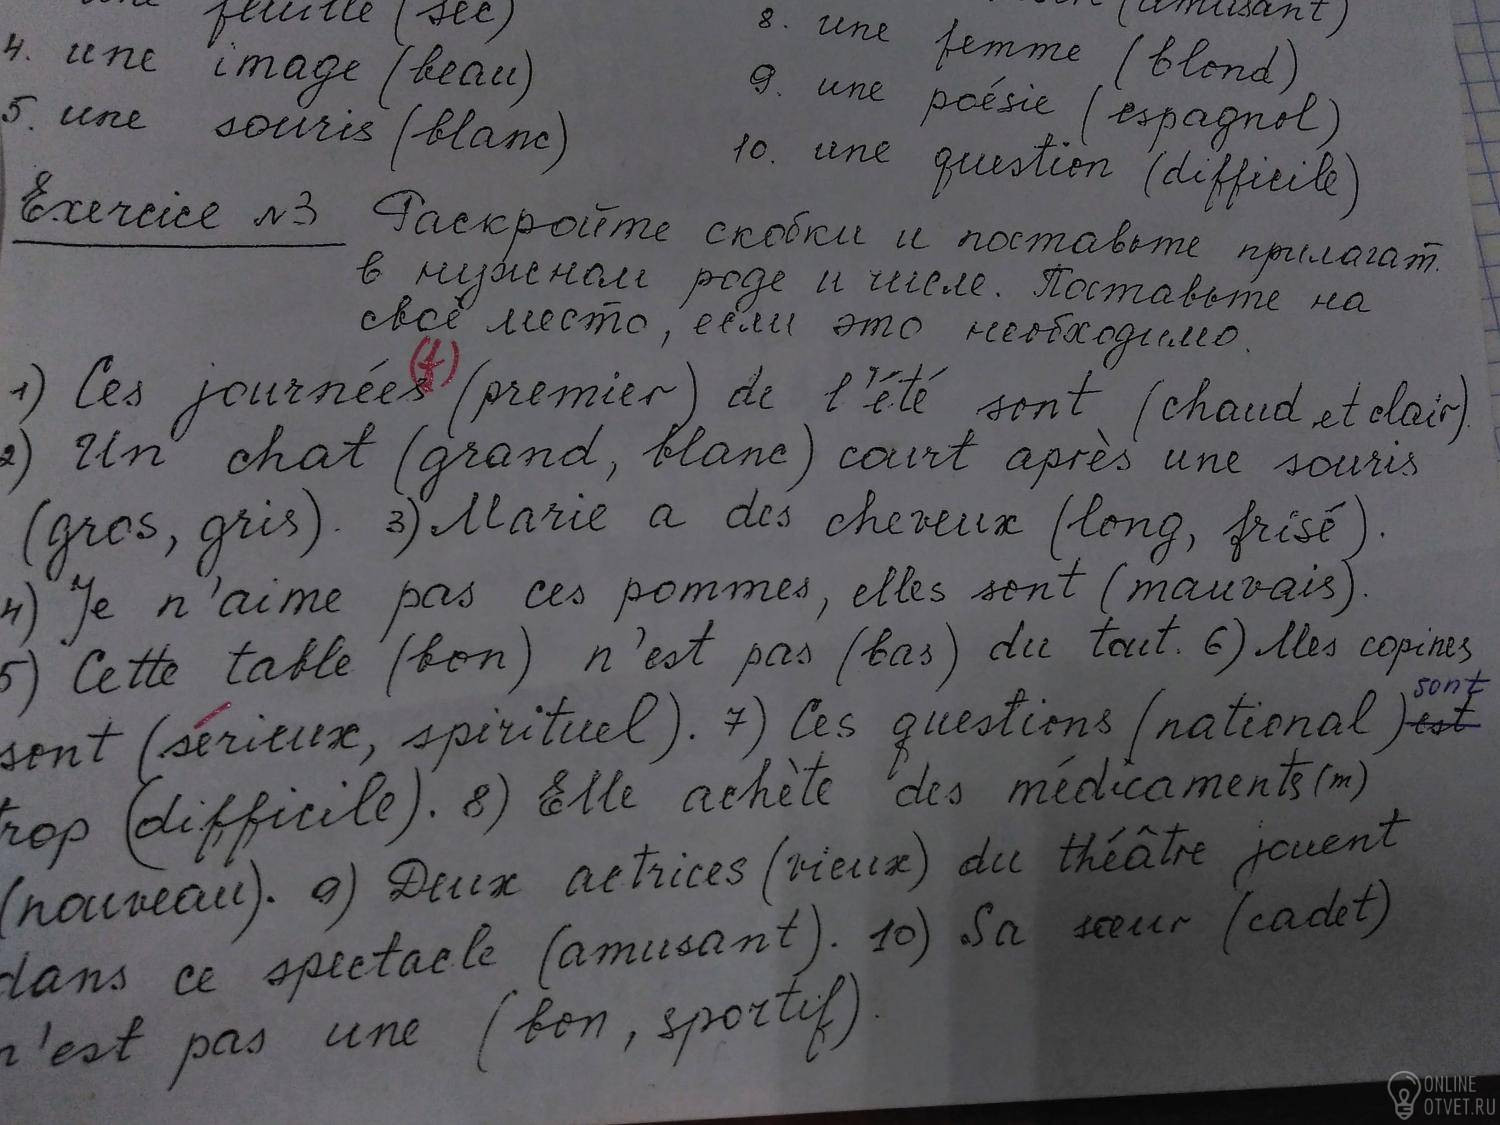 feuille (sec)
(amusant)
4. une image (beau)
8. une femme (blond)
5. une souris (blanc)
9. une poésie (espagnol)
10. une question (difficile)
Exercice №3 Раскройте скобки и поставьте прилагат.
в нужном роде и числе. Поставьте на
своё место, если это необходимо.
(f)
1) Ces journées (premier) de l'été sont (chaud et clair).
2) Un chat (grand, blanc) court après une souris
(gros, gris). 3) Marie a des cheveux (long, frisé).
4) Je n'aime pas ces pommes, elles sont (mauvais).
5) Cette table (bon) n'est pas (bas) du tout. 6) Mes copines
sont (sérieux, spirituel). 7) Ces questions (national) est sont
trop (difficile). 8) Elle achète des médicaments (m)
(nouveau). 9) Deux actrices (vieux) du théâtre jouent
dans ce spectacle (amusant). 10) Sa sœur (cadet)
n'est pas une (bon, sportif).
ONLINE
OTVET.RU